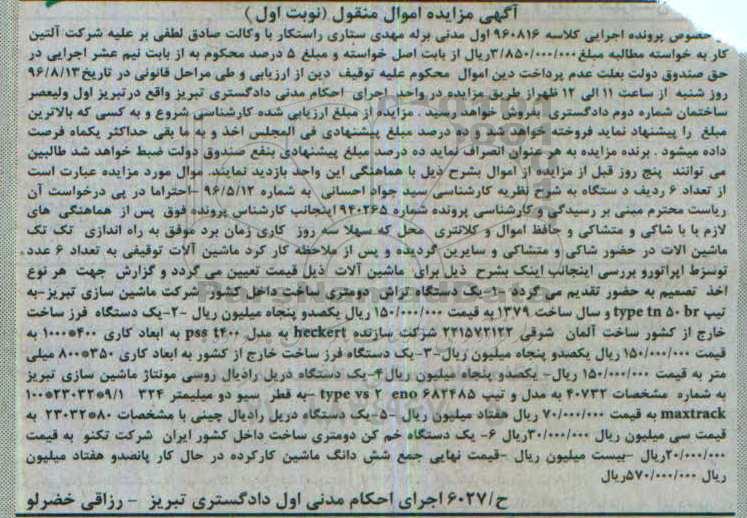 آگهی مزایده اموال منقول (نوبت اول)
خصوص پرونده اجرایی کلاسه ۹۶۰۸۱۶ اول مدنی برله مهدی ستاری راستکار با وکالت صادق لطفی بر علیه شرکت آلتین
کار به خواسته مطالبه مبلغ ۳/۸۵۰/۰۰۰/۰۰۰ریال از بابت اصل خواسته و مبلغ ۵ درصد محکوم به از بابت نیم عشر اجرایی در
حق صندوق دولت بعلت عدم پرداخت دین اموال محکوم علیه توقیف دین از ارزیابی و طی مراحل قانونی در تاریخ ۹۶/۸/۱۳
روز شنبه از ساعت ۱۱ الی ۱۲ ظهر از طریق مزایده در واحد اجرای احکام مدنی دادگستری تبریز واقع در تبریز اول ولیعصر
ساختمان شماره دوم دادگستری بفروش خواهد رسید . مزایده از مبلغ ارزیابی شده کارشناسی شروع و به کسی که بالاترین
مبلغ را پیشنهاد نماید فروخته خواهد شد . ده درصد مبلغ پیشنهادی فی المجلس اخذ و به ما بقی حداکثر یکماه فرصت
داده میشود . برنده مزایده به هر عنوان انصراف نماید ده درصد مبلغ پیشنهادی بنفع صندوق دولت ضبط خواهد شد طالبین
می توانند پنج روز قبل از مزایده از اموال بشرح ذیل با هماهنگی این واحد بازدید نمایند. اموال مورد مزایده عبارت است
از تعداد ۶ ردیف د ستگاه به شرح نظریه کارشناسی سید جواد احسانی به شماره ۹۶/۵/۱۲ -احتراما در پی درخواست آن
ریاست محترم مبنی بر رسیدگی و کارشناسی پرونده شماره ۹۴۰۲۶۵ اینجانب کارشناس پرونده فوق پس از هماهنگی های
لازم با با شاکی و متشاکی و حافظ اموال و کلانتری محل که سهلا سه روز کاری زمان برد موفق به راه اندازی تک تک
ماشین الات در حضور شاکی و متشاکی و سایرین گردیده و پس از ملاحظه کار کرد ماشین آلات توقیفی به تعداد ۶ عدد
توسزط اپراتورو بررسی اینجانب اینک بشرح ذیل برای ماشین آلات ذیل قیمت تعیین می گردد و گزارش جهت هر نوع
اخذ تصمیم به حضور تقدیم می گردد -۱-یک دستگاه تراش دومتری ساخت داخل کشور شرکت ماشین سازی تبریز-به
تیپ type tn ۵۰ br و سال ساخت ۱۳۷۹ به قیمت ۱۵۰/۰۰۰/۰۰۰ ریال یکصدو پنجاه میلیون ریال -۲-یک دستگاه فرز ساخت
خارج از کشور ساخت آلمان شرقی ۲۲۱۵۷۲۱۲۲ شرکت سازنده heckert به مدل pss t۴۰۰ به ابعاد کاری ۴۰۰*۱۰۰۰ به
قیمت ۱۵۰/۰۰۰/۰۰۰ ریال یکصدو پنجاه میلیون ریال-۳-یک دستگاه فرز ساخت خارج از کشور به ابعاد کاری ۳۵۰*۸۰۰ میلی
متر به قیمت ۱۵۰/۰۰۰/۰۰۰ ریال- یکصدو پنجاه میلیون ریال۴-یک دستگاه دریل رادیال روسی مونتاژ ماشین سازی تبریز
به شماره مشخصات ۴۰۷۳۲ به مدل و تیپ type vs ۲ eno ۶۸۲۴۸۵ -به قطر سیو دو میلیمتر ۳۲۴ ۹/۱*۲۳۰۳۲*۱۰۰
maxtrack به قیمت ۷۰/۰۰۰/۰۰۰ ریال هفتاد میلیون ریال -۵-یک دستگاه دریل رادیال چینی با مشخصات ۸۰*۲۳۰۳۲ به
قیمت سی میلیون ریال ۳۰/۰۰۰/۰۰۰ریال ۶- یک دستگاه خم کن دومتری ساخت داخل کشور ایران شرکت تکنو به قیمت
۲۰/۰۰۰/۰۰۰ریال -بیست میلیون ریال -قیمت نهایی جمع شش دانگ ماشین کارکرده در حال کار پانصدو هفتاد میلیون
ریال ۵۷۰/۰۰۰/۰۰۰ریال
ح/۶۰۲۷ اجرای احکام مدنی اول دادگستری تبریز - رزاقی خضرلو